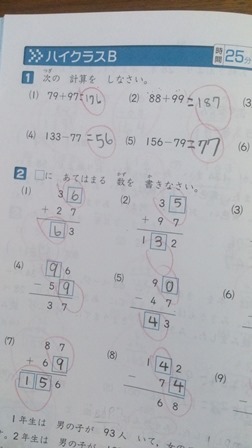 ハイクラスB 時間 25分
1 次の 計算を しなさい。
(1) 79+97=176 (2) 88+99=187 (3)
(4) 133-77=56 (5) 156-79=77 (6)
2 □に あてはまる 数を 書きなさい。
(1) (2) (3)
3 6 3 5
+ 2 7 + 9 7
6 3 1 3 2
(4) (5) (6)
9 6 9 0
- 5 9 - 4 7
3 7 4 3
(7) (8) (9)
8 7 1 4 2
+ 6 9 - 7 4
1 5 6 6 8
1年生は 男の子が 93人 いて,
2年生は 男の子